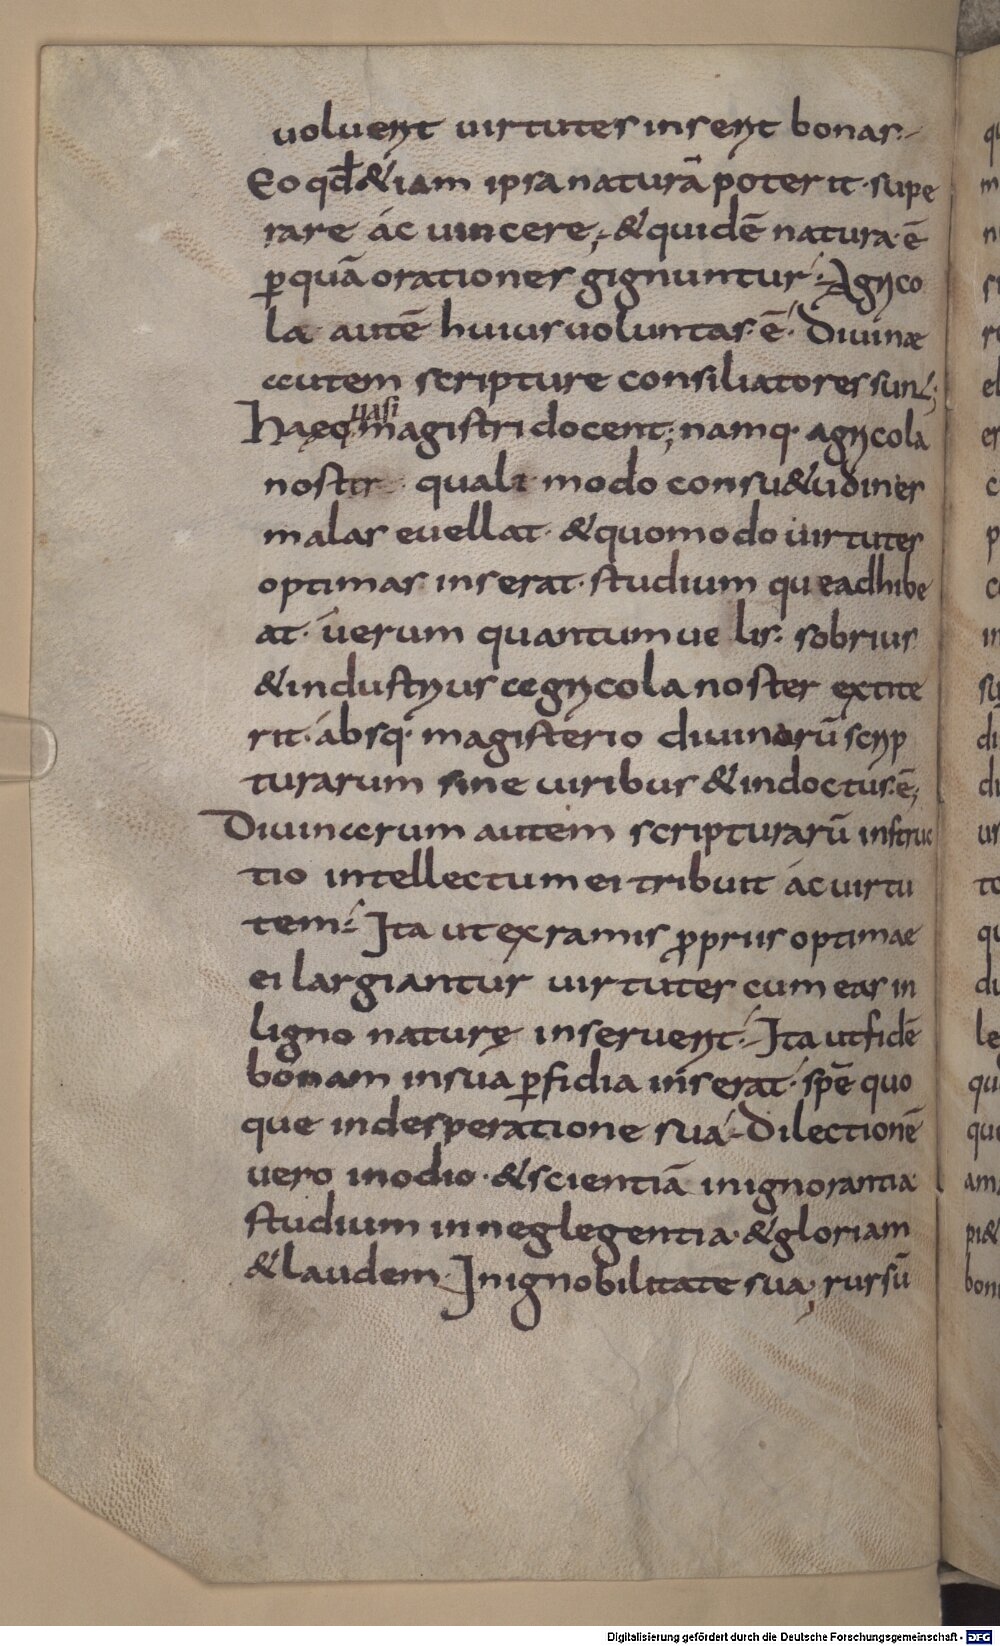 uoluerit uirtutes inserit bonas.
Eo qđ &iam ipsa naturā poterit supe
rare ác uincere; & quidē natura ē
ꝑ quā orationes gignuntur. Agrico
la autē huius uoluntas ē. Diuinæ
autem scripture consiliatores sunt;
uasi
Haec magistri docent; namq· agricola
nostir quali modo consu&udines
malas euellat & quomodo uirtutes
optimas inserat. studium que adhibe
at. uerum quantumue lis. sobrius
& industrius agricola noster extite
rit. ábsq· magisterio diuinorū scrip
turarum sine uiribus & indoctus ē;
Diuinarum autem scripturarū instruc
tio intellectum ei tribuit ác uirtu
tem. Ita ut ex ramis ꝓpriis optimae
ei largiantur uirtutes cum eas in
ligno naturę inseruerit. Ita ut fidē
bonam in sua ꝑfidia inserat. spē quo
que in desperatione suá. Dilectionē
uero in odio. & scientiā in ignorantia
studium in neglegentia. & gloriam
& laudem. In ignobilitate sua, rursū
Digitalisierung gefördert durch die Deutsche Forschungsgemeinschaft - DFG